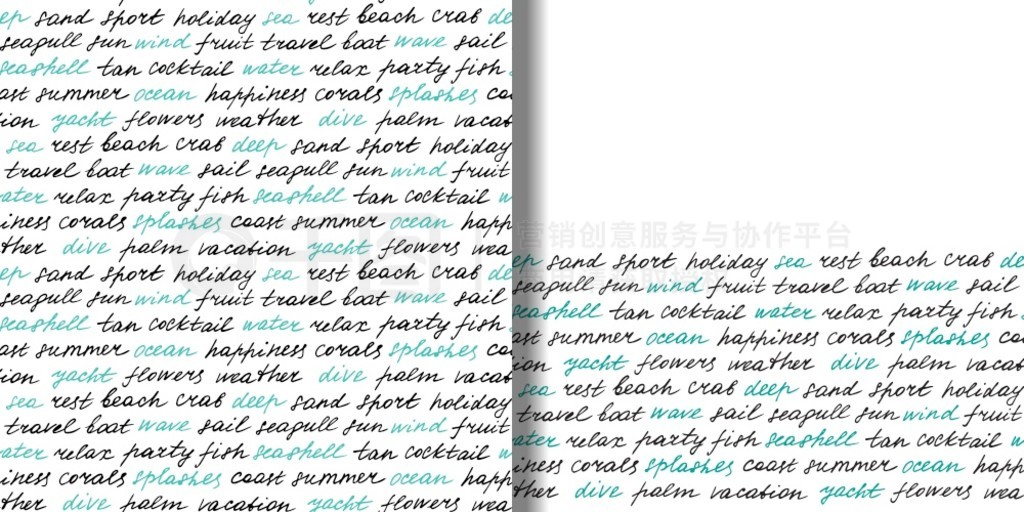 ep sand sport holiday sea rest beach crab de
seagull sun wind fruit travel boat wave sail
seashell tan cocktail water relax party fish
ast summer ocean happiness corals splashes coa
ion yacht flowers weather dive palm vacat
sea rest beach crab deep sand sport holiday
travel boat wave sail seagull sun wind fruit
ater relax party fish seashell tan cocktail w
iness corals splashes coast summer ocean happ
ther dive palm vacation yacht flowers wea
ep sand sport holiday sea rest beach crab de
seagull sun wind fruit travel boat wave sail
seashell tan cocktail water relax party fish
ast summer ocean happiness corals splashes coa
ion yacht flowers weather dive palm vacat
sea rest beach crab deep sand sport holiday
travel boat wave sail seagull sun wind fruit
ater relax party fish seashell tan cocktail w
iness corals splashes coast summer ocean happ
ther dive palm vacation yacht flowers wea
营销创意服务与协作平台
ep sand sport holiday sea rest beach crab de
seagull sun wind fruit travel boat wave sail
seashell tan cocktail water relax party fish
ast summer ocean happiness corals splashes coa
ion yacht flowers weather dive palm vacat
sea rest beach crab deep sand sport holiday
travel boat wave sail seagull sun wind fruit
ater relax party fish seashell tan cocktail w
iness corals splashes coast summer ocean happ
ther dive palm vacation yacht flowers wea